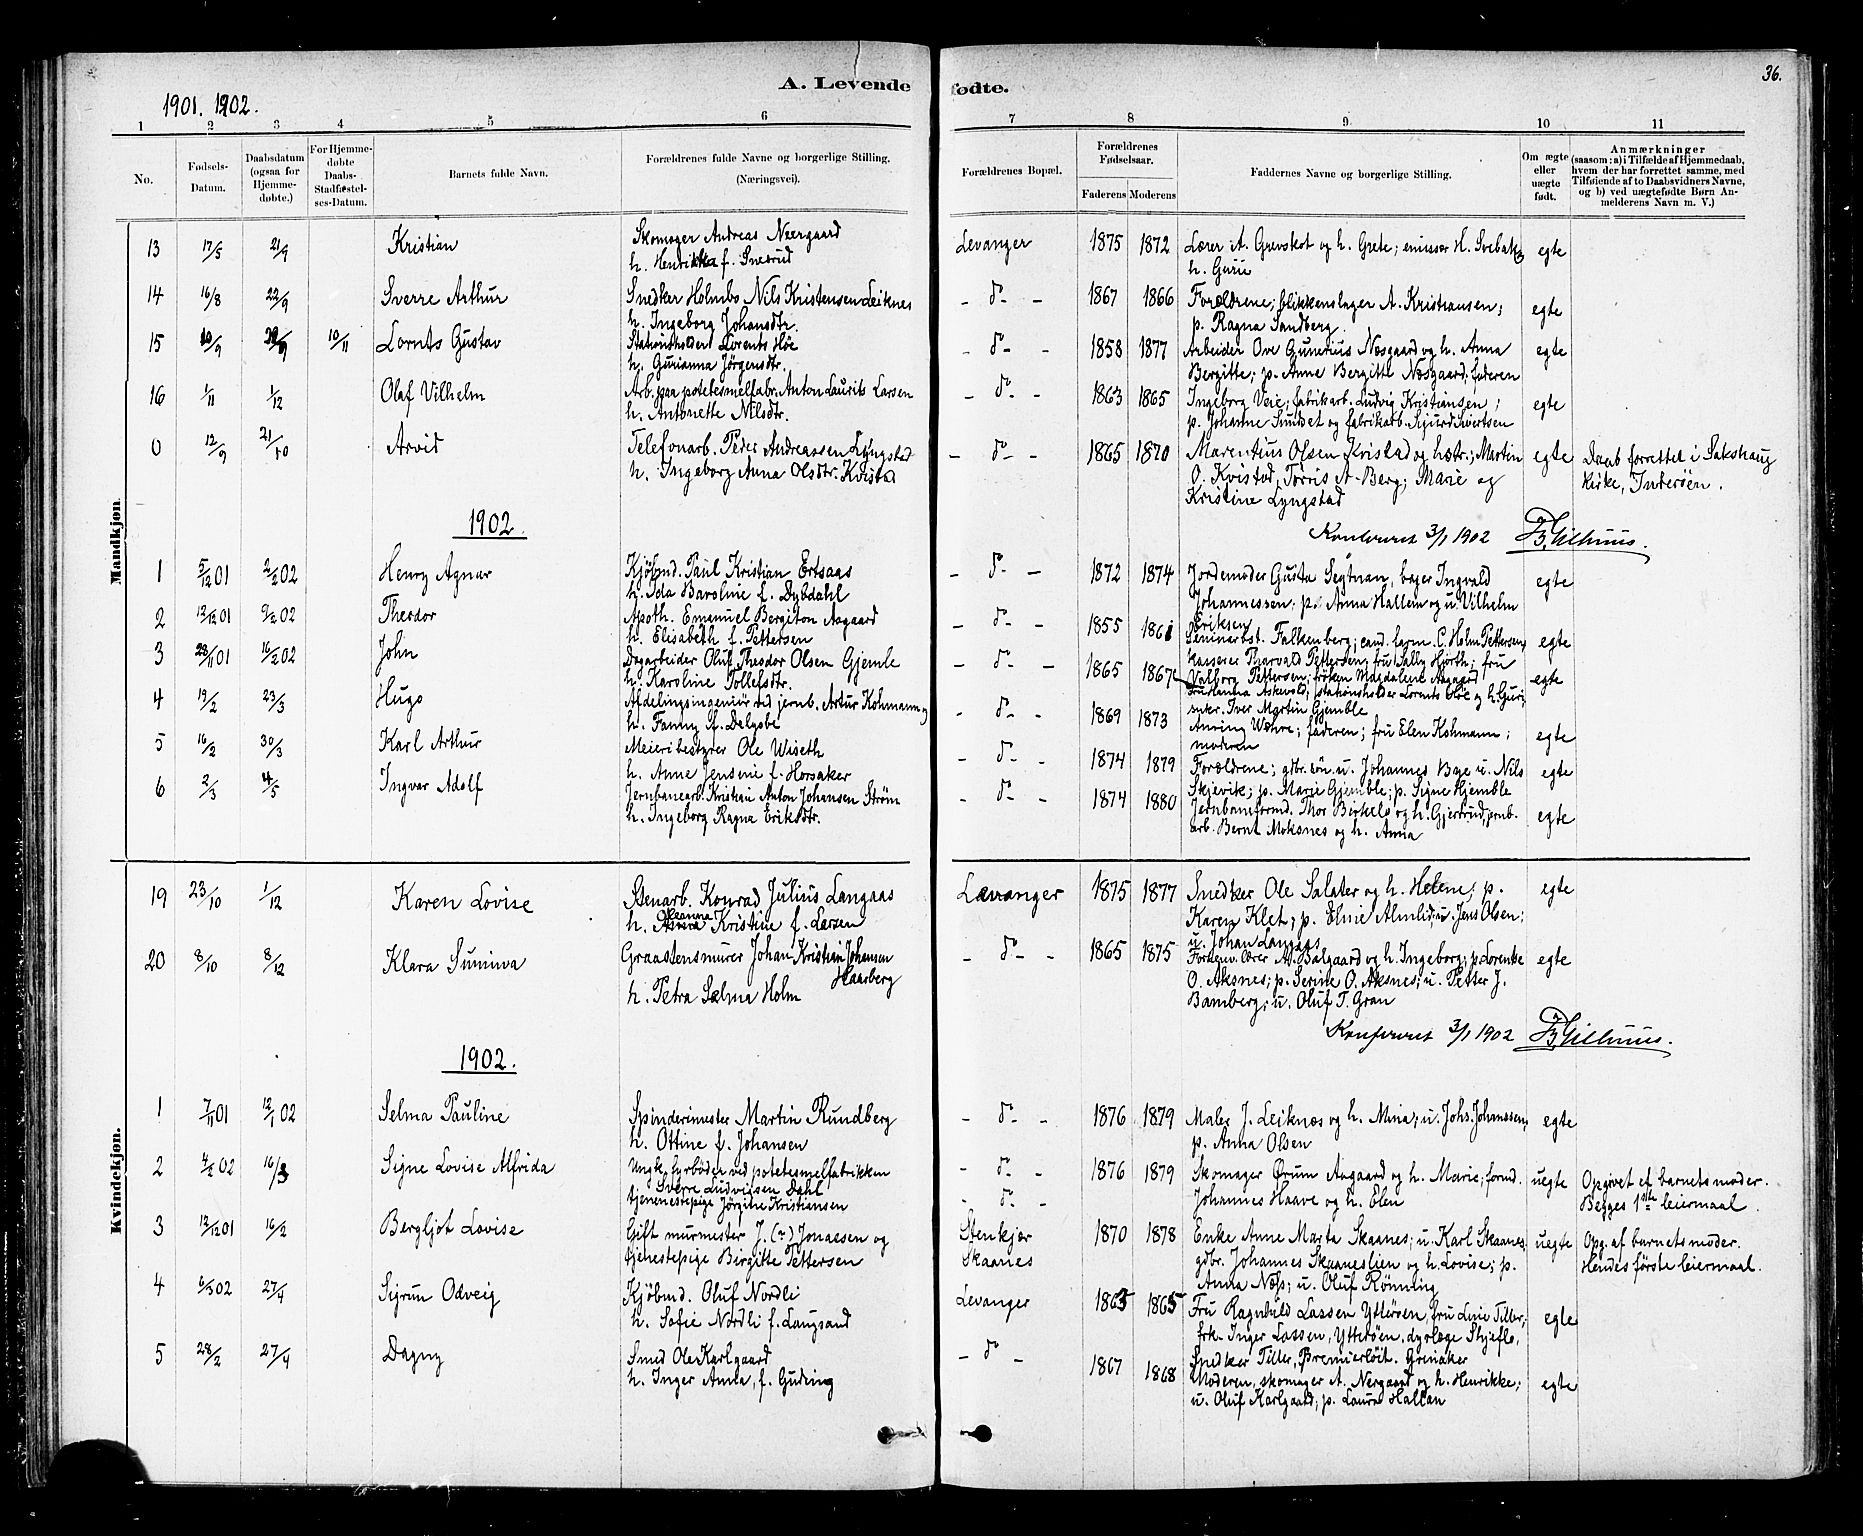 36.
A. Levende fødte.
1901. 1902.
1 2 3 4 5 6 7 8 9 10 11
No.
Fødsels-Datum.
Daabsdatum (ogsaa for Hjemmedøbte.)
For Hjemmedøbte Daabs-Stadfæstelses-Datum.
Barnets fulde Navn.
Forældrenes fulde Navne og borgerlige Stilling. (Næringsvei).
Forældrenes Bopæl.
Forældrenes Fødselsaar.
Faderens Moderens
Faddernes Navne og borgerlige Stilling.
Om ægte eller uægte født.
Anmærkninger
(saasom: a) i Tilfælde af Hjemmedaab,
hvem der har forrettet samme, med
Tilføiende af to Daabsvidners Navne,
og b) ved uægtefødte Børn An-
melderens Navn m. V.)
Mandkjøn.
13 17/5 21/9 Kristian Skomager Andreas Neergaard Levanger 1875 1872 Lærer A. Grevskot og h. Grete; emissær H. Svebak, egte
h. Henrikka f. Snerud h. Gurie
14 16/8 22/9 Sverre Arthur Snedker Holmbo Nils Kristensen Leiknes - do - 1867 1866 Forældrene; blikkenslager A. Kristiansen; egte
h. Ingeborg Johansdtr. p. Ragna Sandberg.
15 20/9 10/11 Lornts Gustav Stationsholder Lorents Høe - do - 1858 1877 Arbeider Ove Gunerius Næsgaard og h. Anna egte
h. Gurianna Jørgensdtr. Bergitte; p. Anne Bergitte Næsgaard; faderen
16 1/11 1/12 Olaf Vilhelm Arb. paa potetesmelfabr. Anton Laurits Larsen - do - 1863 1865 Ingeborg Veie; fabrikarb. Ludvig Kristiansen; egte
h. Antonette Nilsdtr. p. Johanne Sundset og fabrikarb. Sigurd Sivertsen
0 12/9 21/10 Arvid Telefonarb. Peder Andreassen Lyngstad - do - 1865 1870 Marentius Olsen Kvistad og hstr.; Martin egte Daab forrettet i Sakshaug
h. Ingeborg Anna Olsdtr. Kvistad O. Kvistad, Torris A. Berg; Marie og kirke, Inderøen.
Kristine Lyngstad
1902.
Konfereret 3/1 1902 Gilhuus.
1 5/12 01 2/2 02 Henry Agnar Kjøbmd. Paul Kristian Ertsaas - do - 1872 1874 Jordemoder Gusta Segtnan, bager Ingvald egte
h. Ida Baroline f. Dybdahl Johannessen; p. Anna Hallem og u. Vilhelm
Eriksen
2 12/12 01 9/2 02 Theodor Apoth. Emanuel Bergiton Aagaard - do - 1855 1861 Seminarbst. Falkenberg; cand. farm. C. Holm Pettersen, egte
h. Elisabeth f. Pettersen kasserer Thorvald Pettersen; fru Sally Hjorth; fru
Valborg Pettersen; frøken Magdalene Aagaard
3 23/11 01 16/2 02 John Dagarbeider Oluf Theodor Olsen Gjemle - do - 1865 1867 Julianna Askevold; stationsholder Lornts Høe og h. Guri; egte
h. Karoline Tollefsdtr. snkr. Iver Martin Gjemble
4 19/2 23/3 Hugo Afdelingsingeniør ved jernb. Artur Kohmann og - do - 1869 1873 Anving Wæhre; faderen; fru Elen Kohmann; egte
h. Fanny f. Dalgobe moderen
5 16/2 30/3 Karl Arthur Meieribestyrer Ole Wiseth - do - 1874 1879 Forældrene; gdbr. søn u. Johannes Bye u. Nils egte
h. Anne Jensine f. Horsaker Skjevik; p. Marie Gjemble; p. Signe Gjemble
6 2/3 4/5 Ingvar Adolf Jernbanearb. Kristian Anton Johansen Strøm - do - 1874 1880 Jernbaneformd. Thor Birkelo og h. Gjertrud, jernb. egte
h. Ingeborg Ragna Eriksdtr. arb. Bernt Moksnes og h. Anna
Kvindekjøn.
19 23/10 1/12 Karen Lovise Stenarb. Konrad Julius Langaas Levanger 1875 1877 Snedker Ole Salater og h. Helene; p. egte
h. Oleanna Kristine f. Larsen Karen Klet; p. Elnie Almlid; u. Jens Olsen;
u. Johan Langaas
20 8/10 8/12 Klara Suniva Graastensmurer Johan Kristian Johansen Haarberg - do - 1865 1875 Forhenv. lærer A. Balgaard og h. Ingeborg; p. Lorentse egte
h. Petra Selma Holm O. Aksnes; p. Serine O. Aksnes; u. Petter J.
Bamberg; u. Oluf T. Gran
Konfereret 3/1 1902 Gilhuus.
1902.
1 7/11 01 12/1 02 Selma Pauline Spinderimester Martin Rundberg - do - 1876 1879 Maler J. Leiknes og h. Mina; u. Johs. Johanssen, egte
h. Ottine f. Johansen p. Anna Olsen
2 4/2 02 16/3 Signe Lovise Alfrida Ungk. fyrbøder ved potetesmelfabrikken - do - 1876 1879 Skomager Ørum Aagaard og h. Marie; formd. uegte Opgivet af barnets moder.
Sverre Ludvigsen Dahl - do - Johannes Haave og h. Elen Begges 1ste leiermaal.
tjenenestepige Jørgine Kristiansen
3 12/12 01 16/2 Bergljot Lovise Gift murmester J. (?) Jonassen og Stenkjær 1870 1878 Enke Anne Marta Skaanes; u. Karl Skaanes, uegte Opg. af barnets moder.
tjenestepige Birgitte Pettersen Skaanes gdbr. Johannes Skaaneslien og h. Lovise; p. Hendes første leiermaal.
Anna Noss; u. Oluf Rønning
4 6/3 02 27/4 Sigrun Odveig Kjøbmd. Oluf Nordli Levanger 1865 1865 Fru Ragnhild Lassen Ytterøen, fru Line Tiller; egte
h. Sofie Nordli f. Langsand frk. Inger Lassen, Ytterøen, dyrlæge Skjeflo,
Snedker Tiller, Premierløit. Grenaker
5 28/2 27/4 Dagny Smed Ole Karlgaard - do - 1867 1868 Moderen, skomager A. Nergaard og h. Henrikke; egte
h. Inger Anna, f. Guding u. Oluf Karlgaard; p. Laura Hallan